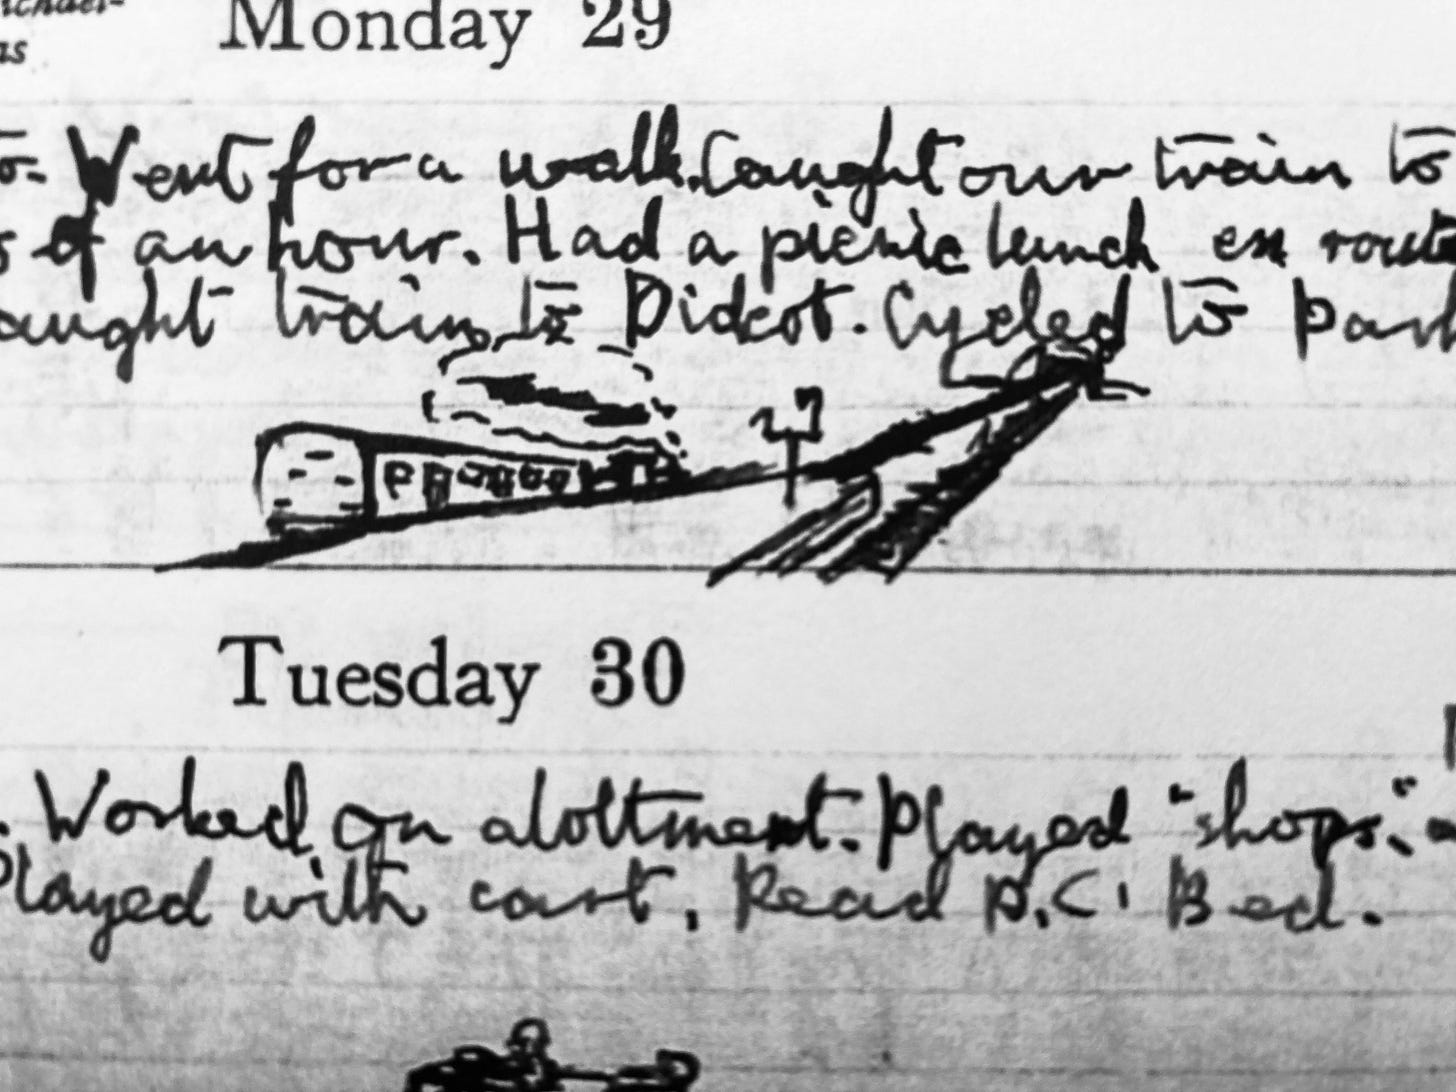 Monday 29
as
Went for a walk. Caught our train to
of an hour. Had a picnic lunch en route
aught train to Didcot. Cycled to Park
Tuesday 30
. Worked on alottment. Played "shops".
Played with cart. Read D.C. Bed.